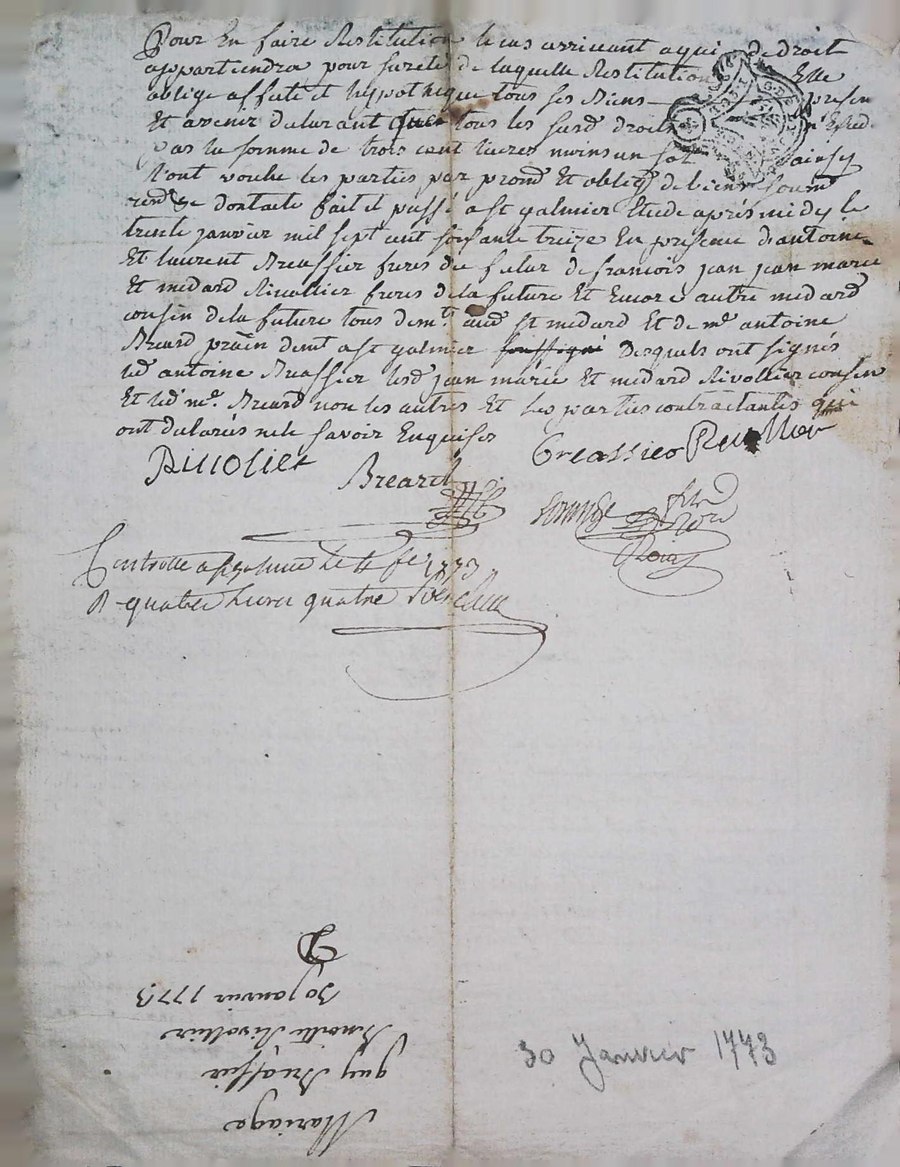 Pour En faire Restitution le cas arrivant a qui de droit
appartiendra pour sureté de laquelle Restitution Elle
oblige affecte et hypotheque tous ses Biens presen
Et avenir declarant que tous les susd droits n'Exced
pas la somme de trois cent livres moins un sol ainsy
l'ont voulu les parties par prom Et oblig de biens soum
ren de dont acte fait et passé a st galmier Etude aprés midy le
trente janvier mil sept cent soixante treize En presence d'antoine
Et laurent Breassier freres du futur de francois jean jean marie
Et medard Rivollier freres de la future Et Encore autre medard
cousin de la future tous dem.t aud st medard Et de m.e antoine
Breard pratn demt a st galmier soussigné Desquels ont signés
led antoine Breassier lesd jean marie Et medard Rivollier cousin
Et led m.e Breard non les autres Et les parties contractantes qui
ont declarés ne le savoir Enquises
Rivolier Breard Breassier
Controllé a le fe 1773
R quatre livres quatre
Mariage
guy Breassier
Benoitte Rivollier
30 janvier 1773
30 Janvier 1773